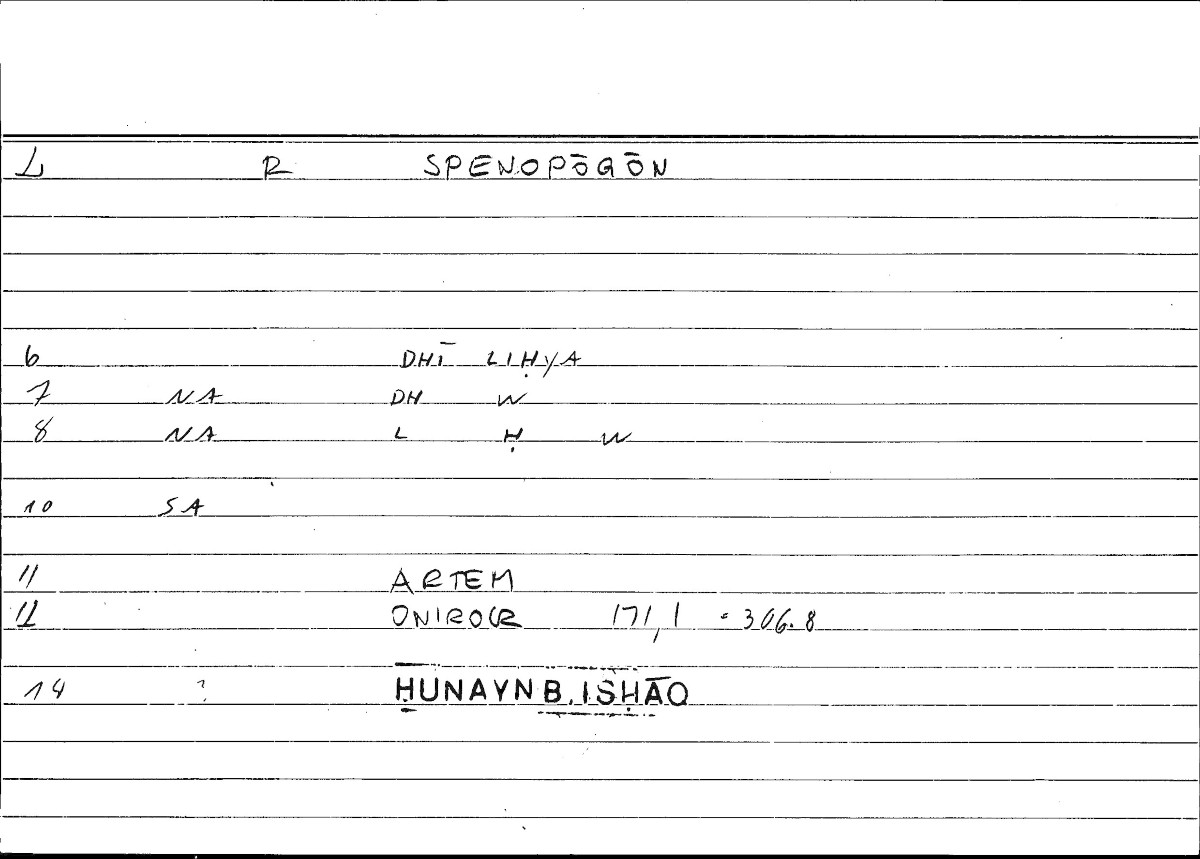 L R SPENOPŌGŌN
6 DHĪ LIḤYA
7 NA DH W
8 NA L Ḥ W
10 SA
11 ARTEM
12 ONIROCR 171,1 = 306.8
14 ? ḤUNAYN B. ISḤĀQ